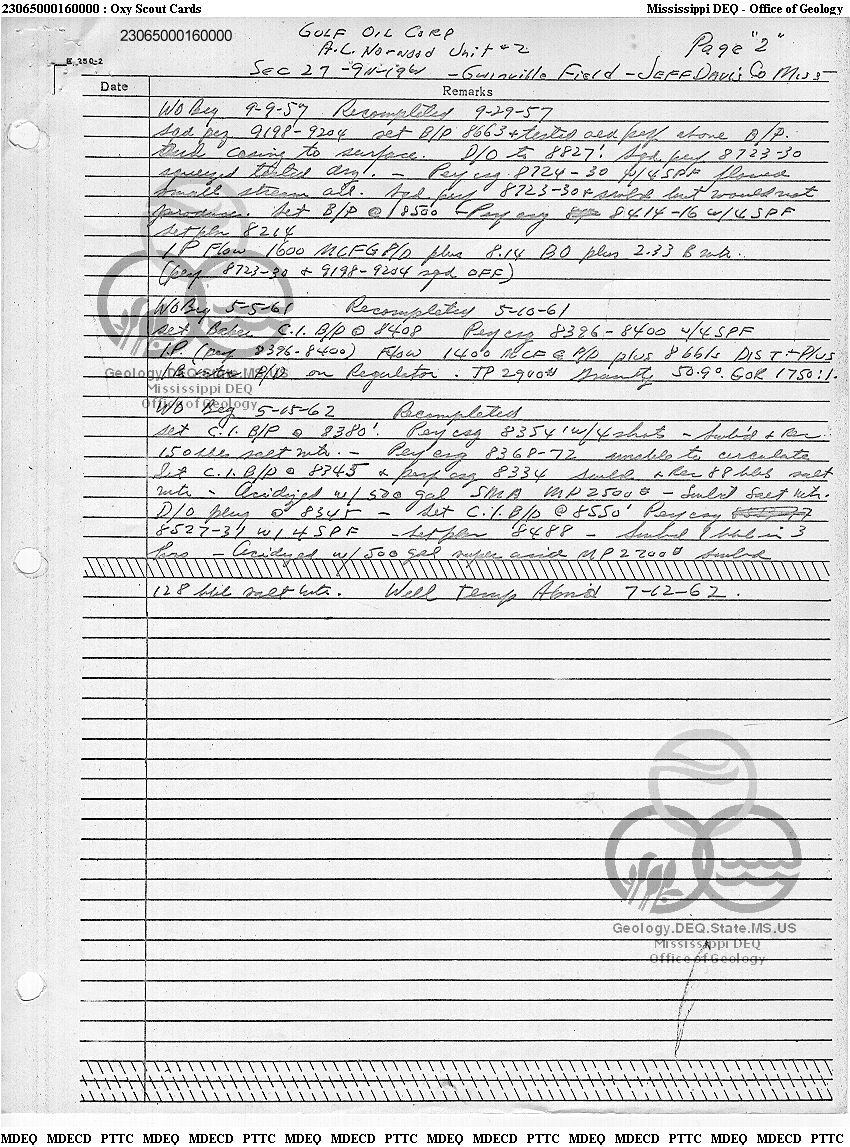 23065000160000 : Oxy Scout Cards Mississippi DEQ - Office of Geology
23065000160000
GULF OIL CORP
A.C. Norwood Unit #2
Page "2"
Sec 27 - 9N-19W - Gwinville Field - JEFF DAVIS Co Miss
Date Remarks
WO Beg 9-9-57 Recompleted 9-29-57
sqd perf 9198-9204 set B/P 8663 + tested old perf above B/P.
casing to surface. D/O to 8827' Sqd perf 8723-30
squeezed tested dry. - Perf csg 8724-30 w/4 SPF flowed
small stream oil. Sqd perf 8723-30 & swbd but would not
produce. Set B/P @ 8500 - Perf csg 8414-16 w/4 SPF
set pkr 8214
I.P Flow 1600 MCFG P/D plus 8.14 BO plus 2.33 B wtr.
(perf 8723-30 & 9198-9204 sqd OFF)
WO Beg 5-5-61 Recompleted 5-10-61
set Baker C.I. B/P @ 8408 Perf csg 8396-8400 w/4 SPF
I.P. (perf 8396-8400) Flow 1400 MCF G P/D plus 8 bbls DIST + Plus
P/D on Regulator. TP 2900# Gravity 50.9° GOR 1750:1.
WO Beg 5-15-62 Recompleted
set C.I. B/P @ 8380' Perf csg 8354' w/4 shots - Swb'd & Rec
150 bbls salt wtr. - Perf csg 8368-72 unable to circulate
Set C.I. B/P @ 8345 & perf csg 8334 swbd & Rec 88 bbls salt
wtr - Acidized w/500 gal SMA MP 2500# - Swb'd salt wtr.
D/O plug @ 8345 - Set C.I. B/P @ 8550' Perf csg
8527-31 w/4 SPF - set pkr 8488 - Swbd 9 bbl in 3
hrs - Acidized w/500 gal super acid MP 2700# swbd
128 bbl salt wtr. Well Temp Abn'd 7-12-62.
Geology.DEQ.State.MS.US
Mississippi DEQ
Office of Geology
Geology.DEQ.State.MS.US
Mississippi DEQ
Office of Geology
MDEQ MDECD PTTC MDEQ MDECD PTTC MDEQ MDECD PTTC MDEQ MDECD PTTC MDEQ MDECD PTTC MDEQ MDECD PTTC